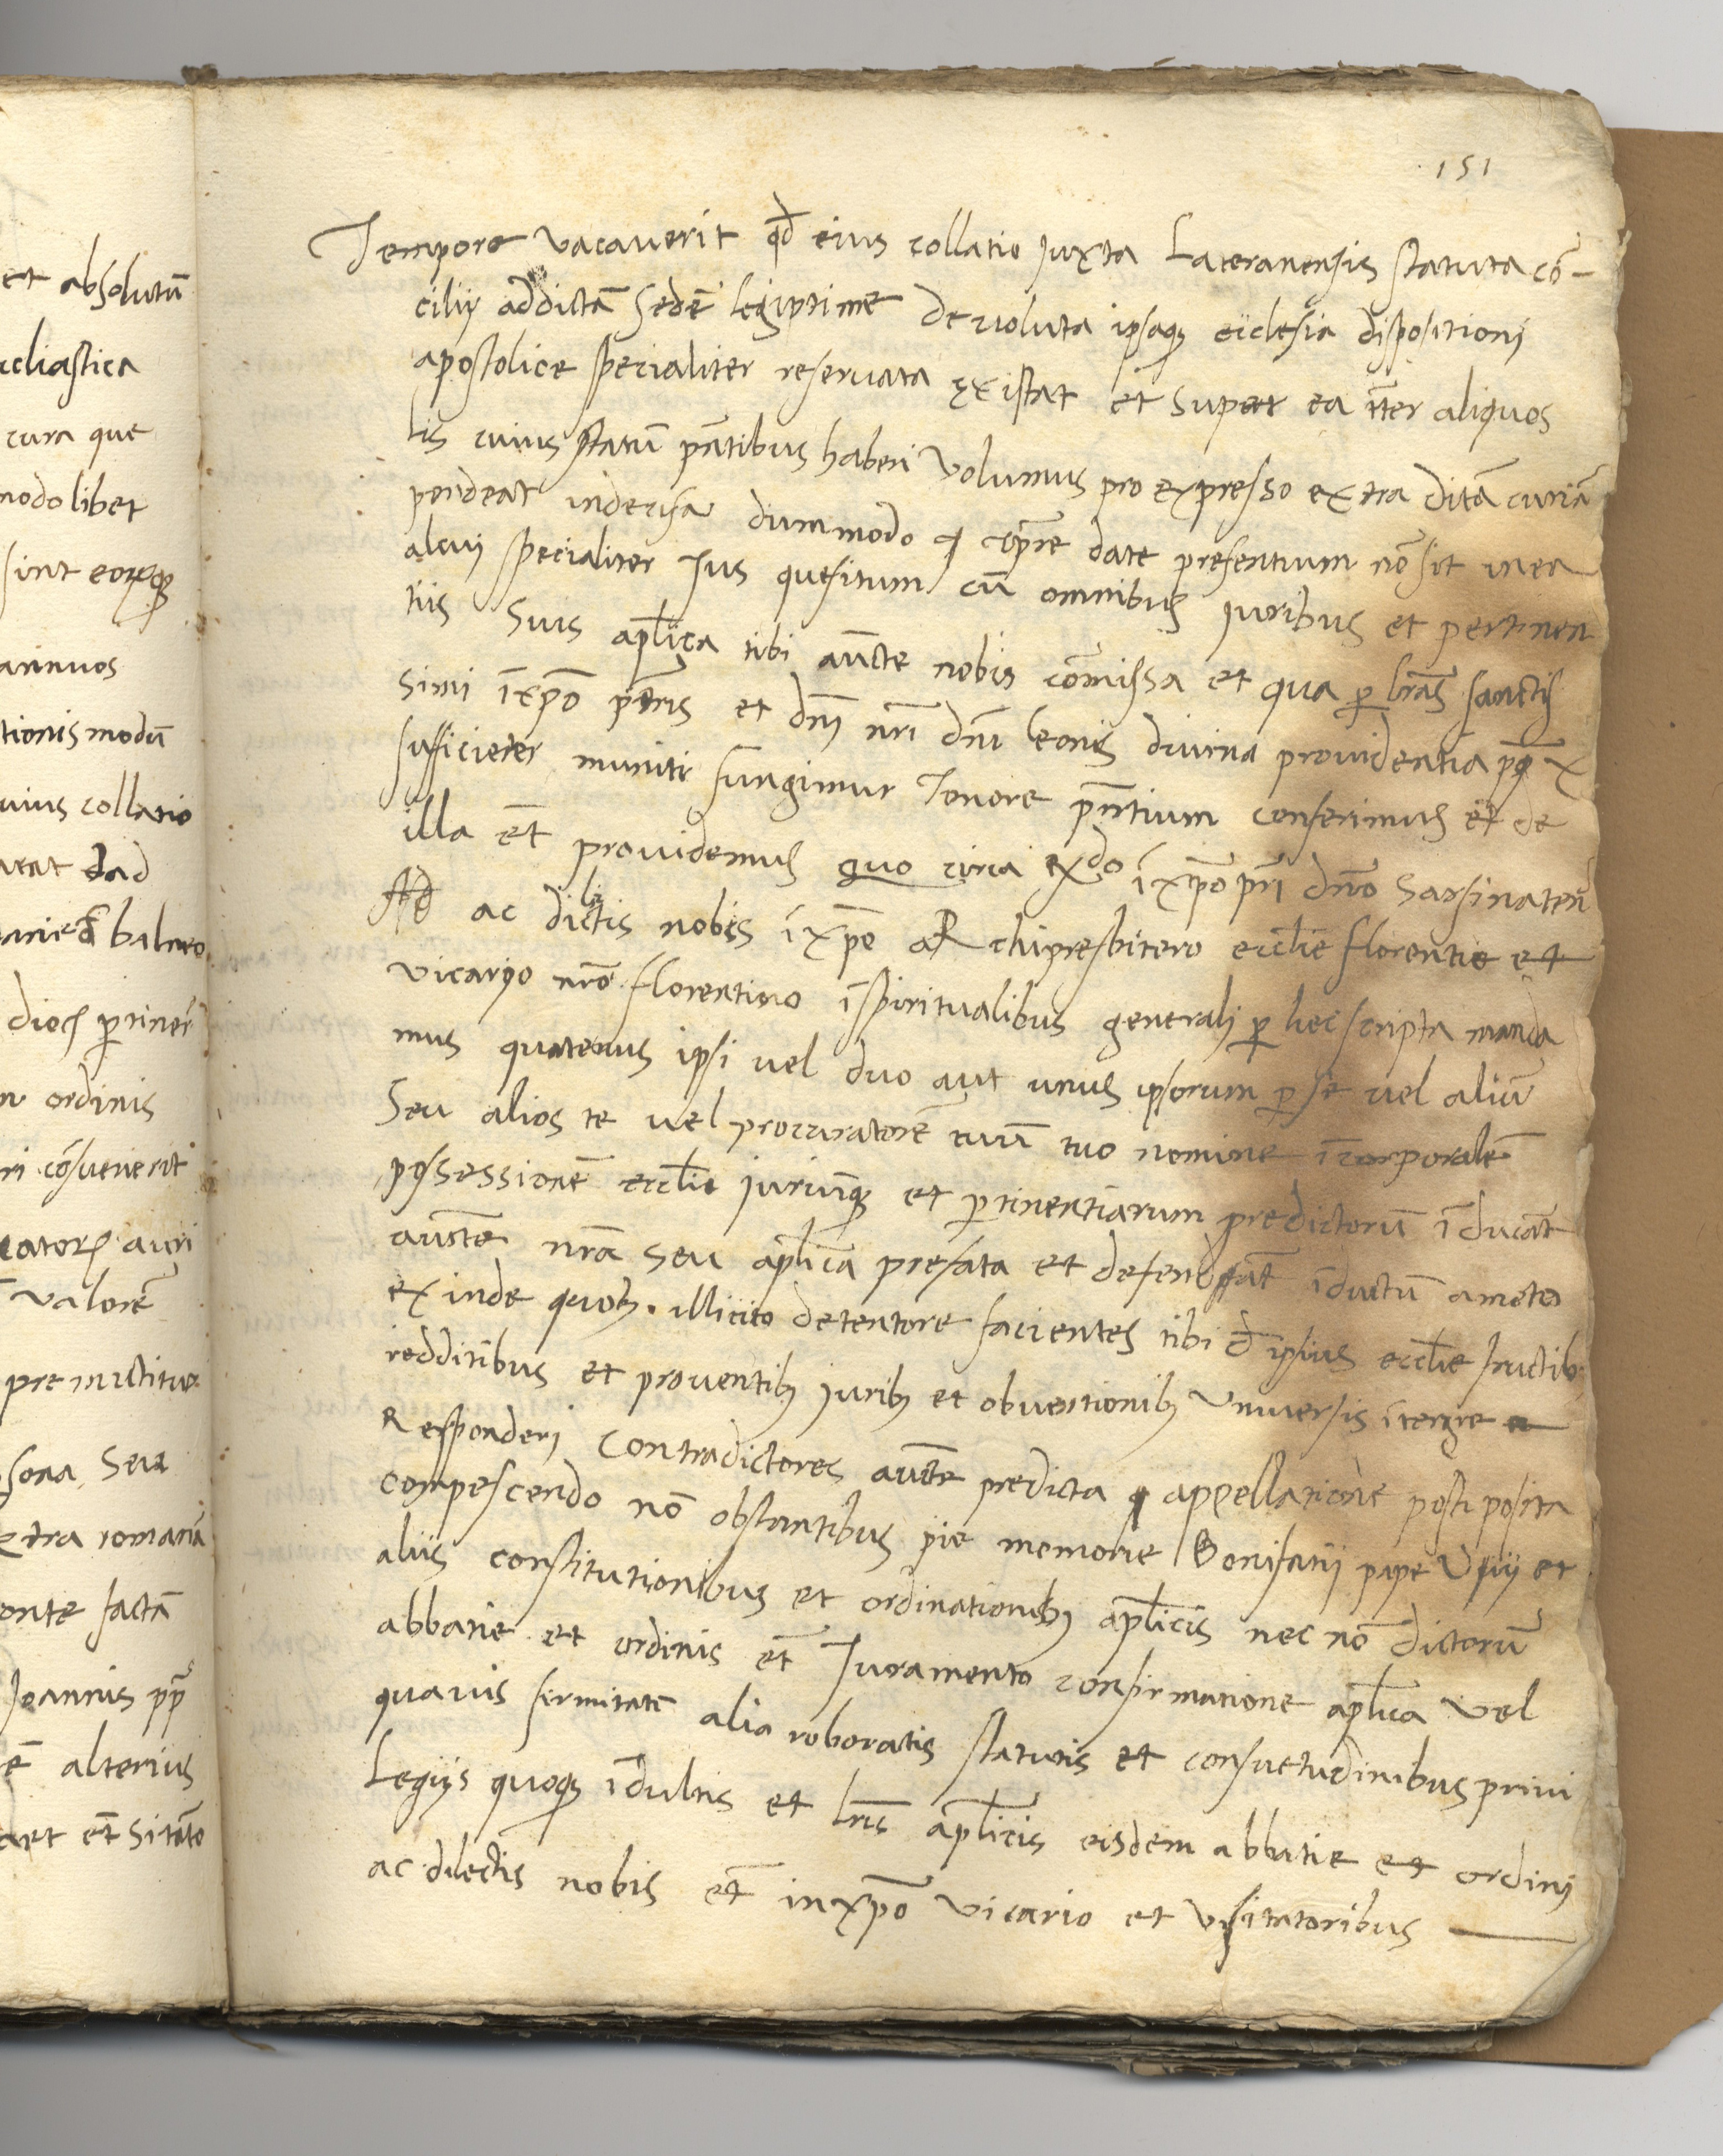 et absolutū
ecliastica
cura que
modolibet
sint eorūq₃
annuos
tionis modū
cuius collatio
balneo
ordinis
cōsuenerit
auri
valorē
premictitur
seu
extra romanā
onte factā
Joannis pp̄
alterius
.151
Tempore vacauerit qd̄ eius collatio Juxta Lateranensis statuta cō-
cilij addictā Sedē legiptime deuoluta ipsaq₃ ecclesia dispositionj
apostolice specialiter reseruata existat et super ea īter aliquos
lis cuius statū pn̄tibus haberi volumus pro expresso extra dictā curiā
pendeat indecisa dummodo tp̄re date presentium nō sit inea
alcuj specialiter Jus quesitum cū omnibus iuribus et pertinen
tiis Suis ap̄lica tibi aūcte nobis cōmissa et qua ꝑ lr̄as sanctis
simi ī xp̄o pr̄is et dnj nr̄i dnī leonis diuina prouidentia pp̄ X
sufficieter muniti fungimur Tenore pn̄tium conferimus et de
illa et̄ prouidemus quo circa ī xp̄o pr̄i dn̄o Sarsinaten̄
ac dilectis nobis ī xp̄o aRchipresbitero eccl̄ie florentie et
vicario nr̄o florentino īspiritualibus generalj ꝑ hec scripta manda
mus quatenus ipsi vel duo aut unus ipsorum ꝑ se vel aliū
Seu alios te vel procuratorē tuū tuo nomine ī corporalē
possessionē eccl̄ie juriūq₃ et ꝑtinentiarum predictorū īducāt
aūcte nr̄a seu ap̄lica prefata et defendāt īductū amoto
exinde quol₃. illicito detentore facientes tibi d̄ ipsius eccl̄ie fructib₃
redditibus et prouentib₃ iurib₃ et obuentionib₃ vniuersis ītegre
Responderj Contradictores aūcte predicta appellatione post posita
compescendo nō obstantibus pie memorie Bonifatij pape Viij et
aliis constitutionibus et ordinationib₃ ap̄licis nec nō dictorū
abbatie et ordinis et̄ Juramento confirmatione ap̄lica vel
quauis firmitate alia roboratis statutis et consuetudinibus priui
Legijs quoq₃ īdultis et lr̄is ap̄licis eisdem abbatie et ordinj
ac dilectis nobis et̄ inxp̄o vicario et visitatoribus —